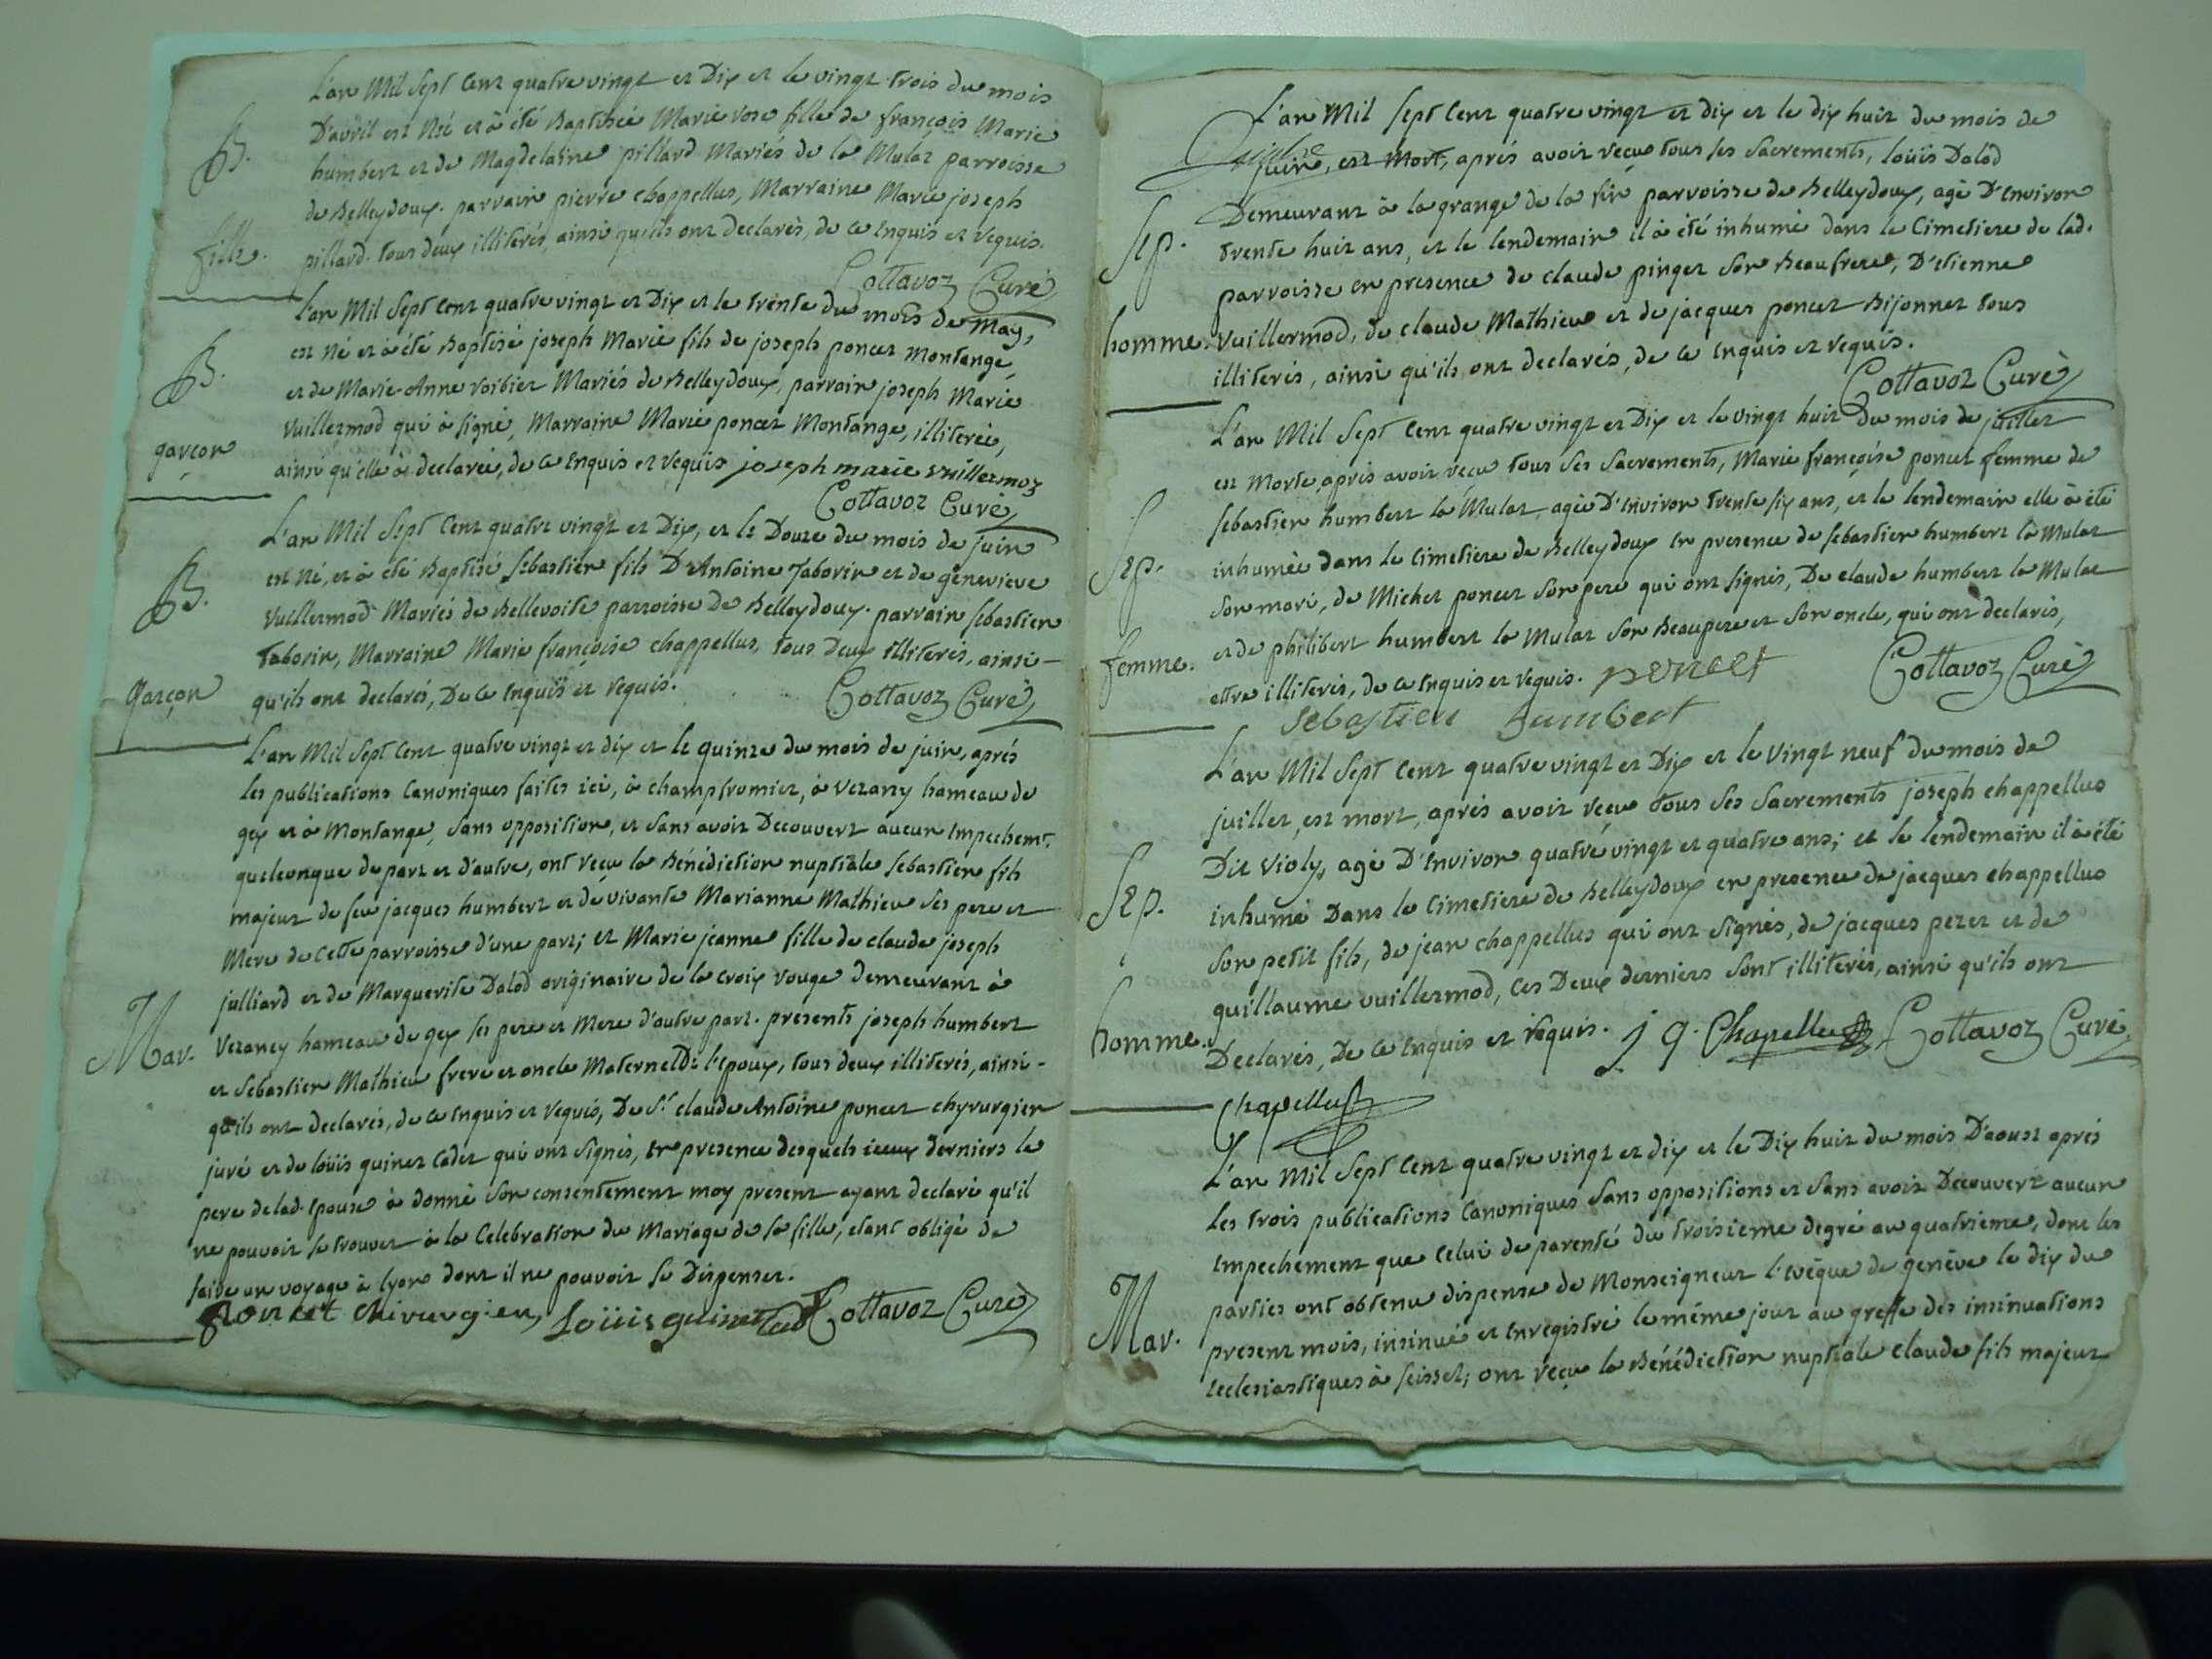 L'an Mil Sept Cent quatre vingt et Dix et le vingt trois du mois
D'avril est Née et à été Baptisée Marie rose fille de françois Marie
B.
humbert et de Magdelaine pillard Mariés de la Mulaz parroisse
de Belleydoux. parrain pierre chappellus, Marraine Marie joseph
fille.
pillard. tous deux illiterés, ainsi qu'ils ont declarés, de ce enquis et requis.
Cottavoz Curé
L'an Mil Sept Cent quatre vingt et Dix et le trente du mois de May,
est né et à été Baptisé joseph Marie fils de joseph poncet Montange,
B.
et de Marie-Anne Voibier Mariés de Belleydoux, parrain joseph Marie
Vuillermod qui à signé, Marraine Marie poncet Montange, illiterée,
garçon
ainsi qu'elle à declarée, de ce enquis et requis joseph marie vuillermoz
Cottavoz Curé
L'an Mil Sept Cent quatre vingt et Dix, et le Douze du mois de juin
est né, et à été Baptisé Sebastien fils D'Antoine Taborin et de genevieve
B.
Vuillermod Mariés de Bellevoite parroisse De Belleydoux. parrain Sebastien
Taborin, Marraine Marie françoise chappellus, tous Deux illiterés, ainsi
garçon
qu'ils ont declarés, De ce enquis et requis.
Cottavoz Curé
L'an Mil Sept Cent quatre vingt et dix et le quinze du mois de juin, après
les publications Canoniques faites ici, à champfromier, à Vezancy hameau de
gex et à Montange, sans opposition, et sans avoir Decouvert aucun Empechemt.
quelconque de part et d'autre, ont reçu la Bénédiction nuptiale Sebastien fils
majeur de feu jacques humbert et de vivante Marianne Mathieu ses pere et
Mere de cette parroisse d'une part; et Marie jeanne fille de claude joseph
julliard et de Marguerite Dalod originaire de la croix rouge demeurant à
Mar.
Vezancy hameau de gex ses pere et Mere d'autre part. presents joseph humbert
et Sebastien Mathieu frere et oncle Maternel De l'epoux, tous deux illiterés, ainsi
qu'ils ont declarés, de ce enquis et requis, De Sr. claude Antoine poncet chyrurgien
juré et de loüis guinet Cadet qui ont signés, en presence desquels iceux derniers le
pere de lad. epouse à donné son consentement moy present ayant declaré qu'il
ne pouvoit se trouver à la Celebration du Mariage de sa fille, etant obligé de
faire un voyage à lyon dont il ne pouvoit se Dispenser.
poncet chirurgien, Loüis guinet Cottavoz Curé
L'an Mil Sept Cent quatre vingt et dix et le dix huit du mois de
juin, est Mort, après avoir reçu tous ses Sacrements, loüis Dalod
Sep.
Demeurant à la grange de la parroisse de Belleydoux, agé D'environ
trente huit ans, et le lendemain il à été inhumé dans le Cimetiere de lad.
parroisse en presence de claude pinget son Beaufrere, D'etienne
homme.
Vuillermod, de claude Mathieu et de jacques poncet Bijonnet tous
illiterés, ainsi qu'ils ont declarés, de ce enquis et requis.
Cottavoz Curé
L'an Mil Sept Cent quatre vingt et Dix et le vingt huit Du mois de juillet
est Morte, après avoir reçu tous Ses Sacrements, Marie françoise poncet femme de
Sebastien humbert la Mulaz, agée D'environ trente six ans, et le lendemain elle à été
Sep.
inhumée dans le Cimetiere de Belleydoux en presence de Sebastien humbert la Mulaz
Son mari, de Michel poncet Son pere qui ont signés, De claude humbert la Mulaz
femme.
et de philibert humbert la Mulaz Son Beaupere et Son oncle, qui ont declarés,
etre illiterés, de ce enquis et requis. poncet Cottavoz Curé
Sebastien humbert
L'an Mil Sept Cent quatre vingt et Dix et le vingt neuf Du mois de
juillet, est mort, après avoir reçu tous Ses Sacrements joseph chappellus
Dit Violy, agé D'environ quatre vingt et quatre ans; et le lendemain il à été
Sep.
inhumé Dans le Cimetiere de Belleydoux en presence de jacques chappellus
Son petit fils, de jean chappellus qui ont signés, de jacques perer et de
homme.
guillaume vuillermod, Ces Deux derniers sont illiterés, ainsi qu'ils ont
Declarés, De ce enquis et requis. j g. Chapellus Cottavoz Curé
Chapellus
L'an Mil Sept Cent quatre vingt et dix et le Dix huit du mois D'aoust après
les trois publications Canoniques Sans oppositions et Sans avoir Decouvert aucun
Empechement que Celui de parenté du troisieme degré au quatrieme, dont les
parties ont obtenu dispense de Monseigneur l'evêque de genève le dix du
Mar.
present mois, insinué et enregistré le même jour au greffe des insinuations
Ecclesiastiques à seissel; ont reçu la Bénédiction nuptiale claude fils majeur